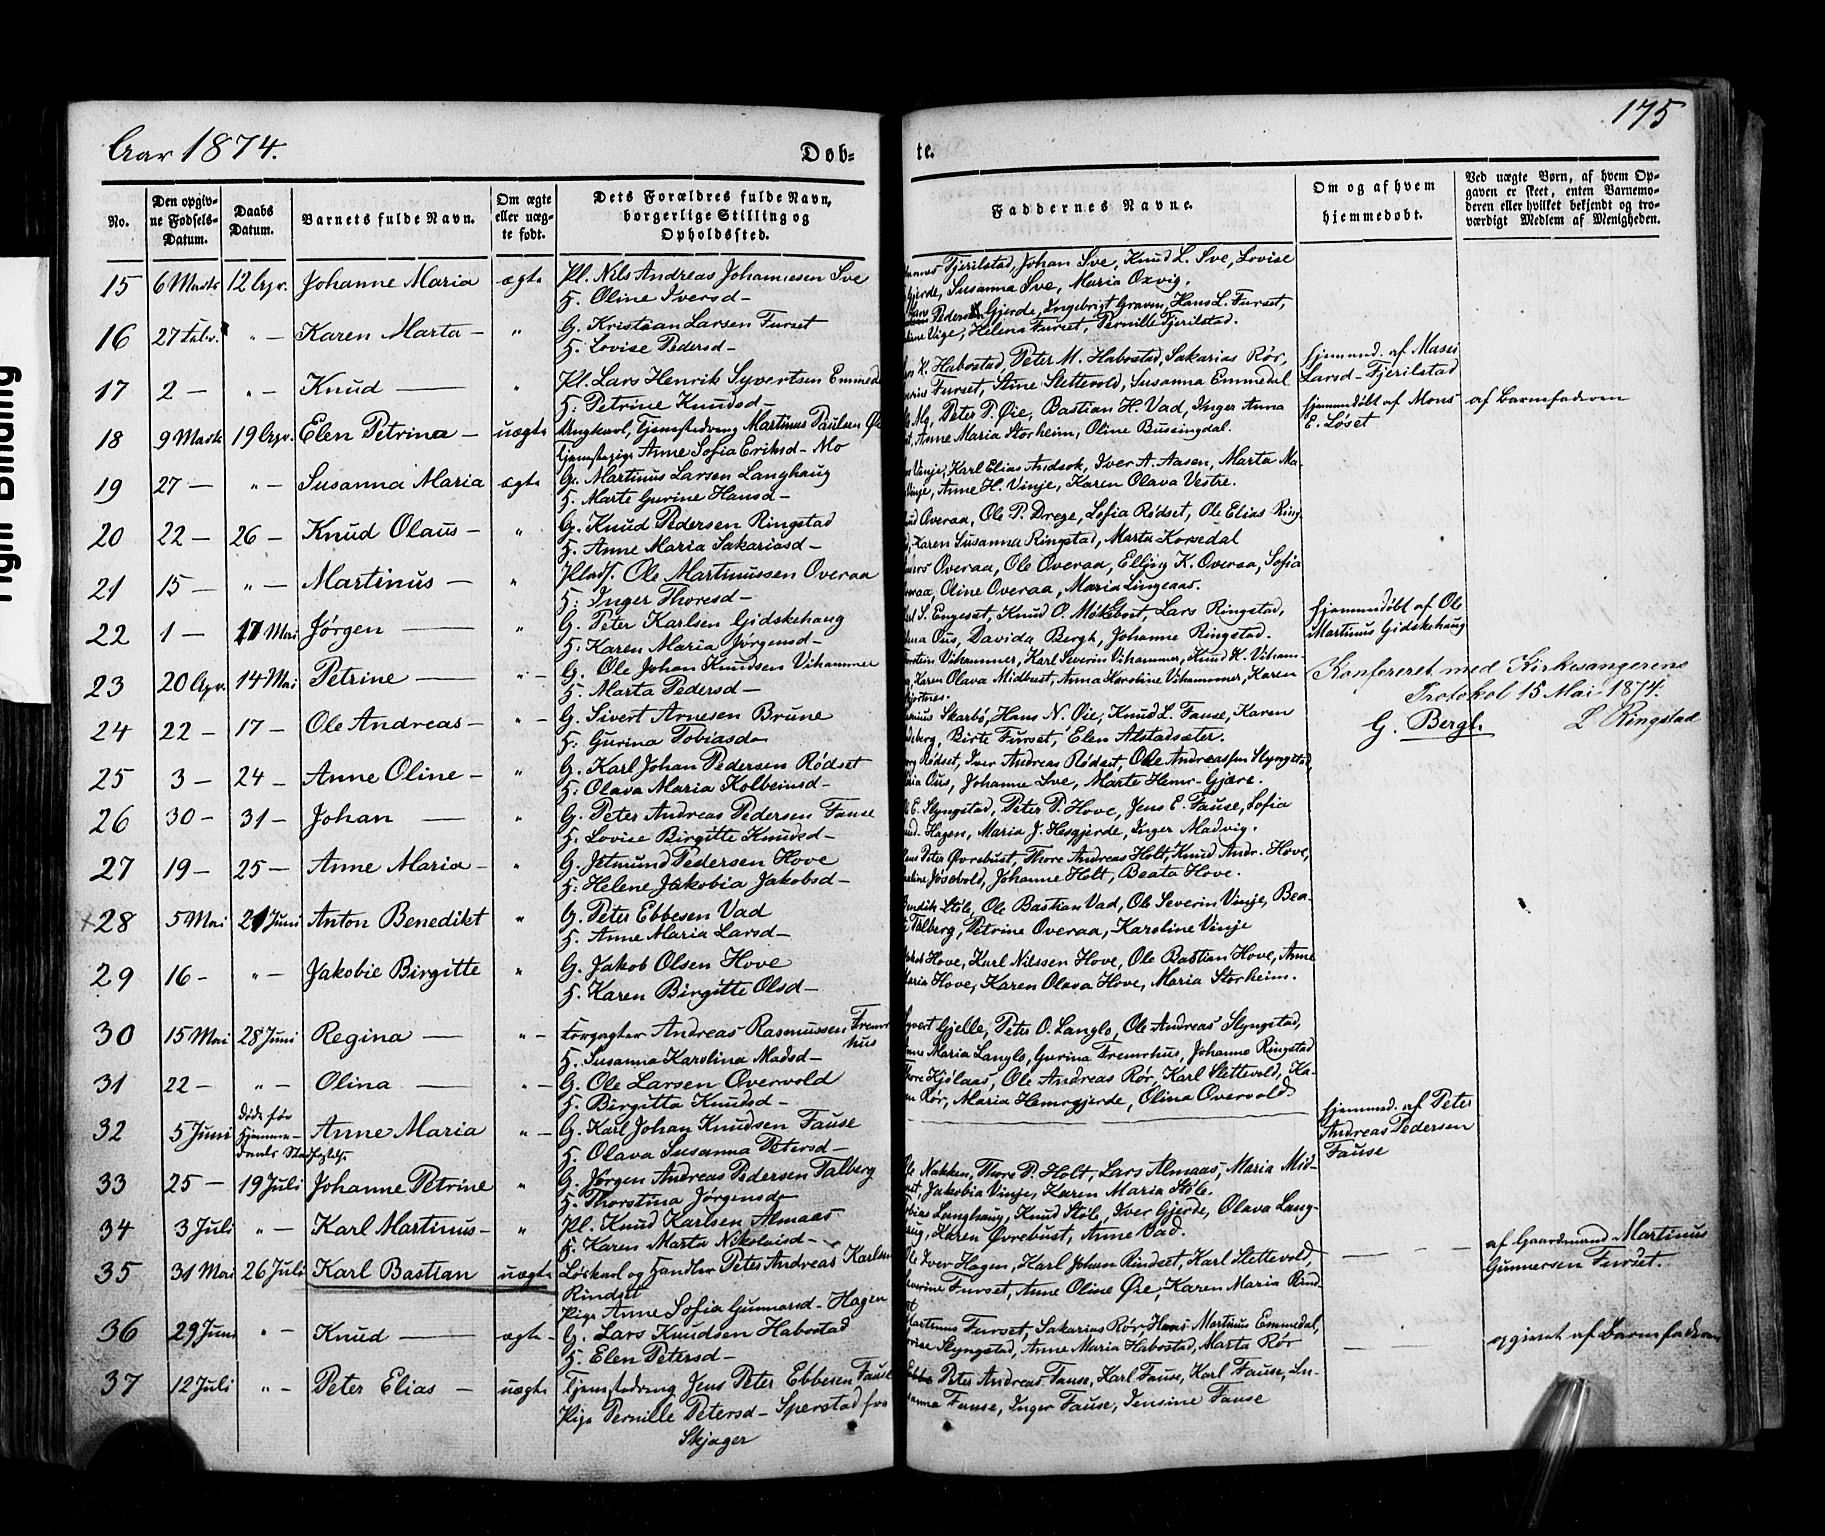 Aar 1874.
Døb-
te.
175
No.
Den opgiv-
ne Fødsels-
Datum.
Daabs
Datum.
Barnets fulde Navn.
Om ægte
eller uæg-
te født.
Dets Forældres fulde Navn,
borgerlige Stilling og
Opholdssted.
Faddernes Navne.
Om og af hvem
hjemmedøbt.
Ved uægte Børn, af hvem Op-
gaven er skeet, enten Barnemo-
deren eller hvilket bekjendt og tro-
værdigt Medlem af Menigheden.
15 6 Marts 12 Apr. Johanne Maria ægte Pl. Nils Andreas Johannesen Sve
H. Oline Iversd-
Fjerilstad, Johan Sve, Knud L. Sve, Lovise
Gjerde, Susanna Sve, Maria Oxvig.
16 27 Febr. " - Karen Marta - " G. Kristian Larsen Furset
H. Lovise Pedersd-
Pedersen Gjerde, Ingebrigt Graven, Hans L. Furset,
Vige, Helena Furset, Pernille Fjerilstad.
17 2 - " - Knud - " Pl. Lars Henrik Syvertsen Emmedal
H. Petrine Knudsd-
H. Habostad, Peter M. Habostad, Sakarias Rør,
Furset, Stine Slettevold, Susanna Emmedal
hjemmed. af Masei
Larsd- Fjerilstad
18 9 Marts 19 Apr. Elen Petrina - uægte Ungkarl, Tjenestedreng Martinus Paulsen Øie
Tjenestepige Anne Sofia Eriksd- Mo
Peter P. Øie, Bastian H. Vad, Inger Anna
Anne Maria Storheim, Oline Bussingdal.
hjemmedøbt af Mons
E. Løset
af Barnefaderen
19 27 - " - Susanna Maria ægte G. Martinus Larsen Langhaug
H. Marte Gurine Hansd-
Vinje, Karl Elias Andsok, Iver A. Aasen, Marta Ma-
Vinje, Anne H. Vinje, Karen Olava Vestre.
20 22 - 26 - Knud Olaus - " G. Knud Pedersen Ringstad
H. Anne Maria Sakariasd-
Overaa, Ole P. Drege, Sofia Rødset, Ole Elias Ring-
Karen Susanna Ringstad, Marta Korsedal
21 15 - " - Martinus - " Plads. Ole Martinussen Overaa
H. Inger Thoresd-
Overaa, Ole Overaa, Elling K. Overaa, Sofia
Oline Overaa, Maria Lingeaas.
22 1 - 17 Mai Jørgen - " G. Peter Karlsen Gidskehaug
H. Karen Maria Jørgensd-
S. Engeset, Knud O. Møksbost, Lars Ringstad,
Ous, Davida Bergh, Johanne Ringstad.
hjemmedøbt af Ole
Martinus Gidskehaug
23 20 Apr. 14 Mai Petrine - " - G. Ole Johan Knudsen Vihammer
H. Marta Pedersd-
Vihammer, Karl Severin Vihammer, Knud K. Viham-
Karen Olava Midbust, Anna Karoline Vihammer, Karen
Konfereret med Kirkesangerens
Protokol 15 Mai 1874.
G. Bergh. L Ringstad
24 22 - 17 - Ole Andreas - " - G. Sivert Arnesen Brune
H. Gurina Tobiasd-
Skarbø, Hans N. Øie, Knud L. Fause, Karen
Birte Furset, Elen Alstadsæter.
25 3 - 24 - Anne Oline - " G. Karl Johan Pedersen Rødset
H. Olava Maria Kolbeinsd-
Rødset, Iver Andreas Rødset, Ole Andreassen Slyngstad,
Ous, Johanne Sve, Marte Hemr-Gjære.
26 30 - 31 - Johan - " G. Peter Andreas Pedersen Fause
H. Lovise Birgitte Knudsd-
E. Slyngstad, Peter P. Hove, Jens E. Fause, Sofia
Hagen, Maria J. Hesgjerde, Inger Madvig.
27 19 - 25 - Anne Maria - " G. Jetmund Pedersen Hove
H. Helene Jakobia Jakobsd-
Peter Øvrebust, Thore Andreas Holt, Knud Andr. Hove,
Jøsevold, Johanne Holt, Beata Hove.
28 5 Mai 21 Juni Anton Benedikt " G. Peter Ebbesen Vad
H. Anne Maria Larsd-
Støle, Ole Bastian Vad, Ole Severin Vinje, Bea-
Talberg, Petrine Overaa, Karoline Vinje
29 16 - " - Jakobie Birgitte " G. Jakob Olsen Hove
H. Karen Birgitte Olsd-
Hove, Karl Nilssen Hove, Ole Bastian Hove, Anne
Maria Hove, Karen Olava Hove, Maria Storheim.
30 15 Mai 28 Juni Regina - " - Forpagter Andreas Rasmussen Fremr
hus
H. Susanna Karolina Madsd-
Gjelle, Peter O. Langlo, Ole Andreas Slyngstad,
Maria Langlo, Gurina Fremrhus, Johanne Ringstad
31 22 - " - Olina - " - G. Ole Larsen Overvold
H. Birgitta Knudsd-
Thore Hjølaas, Ole Andreas Rør, Karl Slettevold, Ka-
Rør, Maria Hemregjerde, Olina Overvold
32 5 Juni Døde før
Hjemme-
daabs Stadfæstelse Anne Maria " - G. Karl Johan Knudsen Fause
H. Olava Susanna Petersd-
hjemmed. af Peter
Andreas Pedersen
Fause
33 25 - 19 Juli Johanne Petrine " G. Jørgen Andreas Pedersen Talberg
H. Thorstina Jørgensd-
Ole Nakken, Thore P. Holt, Lars Almaas, Maria Mid-
Jakobia Vinje, Karen Maria Støle.
34 3 Juli " - Karl Martinus - " Pl. Knud Karlsen Almaas
H. Karen Marta Nikolaisd-
Langhaug, Knud Støle, Iver Gjerde, Olava Lang-
Karen Øvrebust, Anne Vad.
35 31 Mai 26 Juli Karl Bastian uægte Løskarl og Handler Peter Andreas Karlsen
Rindset
Pige Anne Sofia Gunnarsd- Hagen
Iver Hagen, Karl Johan Rindset, Karl Slettevold,
Furset, Anne Oline Øie, Karen Maria Rind-
af Gaardmand Martinus
Gunnersen Furset.
36 29 Juni " - Knud - ægte - G. Lars Knudsen Habostad
H. Elen Petersd-
Martinus Furset, Sakarias Rør, Hans Martinus Emmedal,
Slyngstad, Anne Maria Habostad, Marta Rør
opgivet af Barnefaderen
37 12 Juli " - Peter Elias - uægte Tjenestedreng Jens Peter Ebbesen Fause
Pige Pernille Petersd- Sperstad fra
Skjager
Ebbe Peter Andreas Fause, Karl Fause, Karl Fause, Su-
sanna Fause, Inger Fause, Jensine Fause